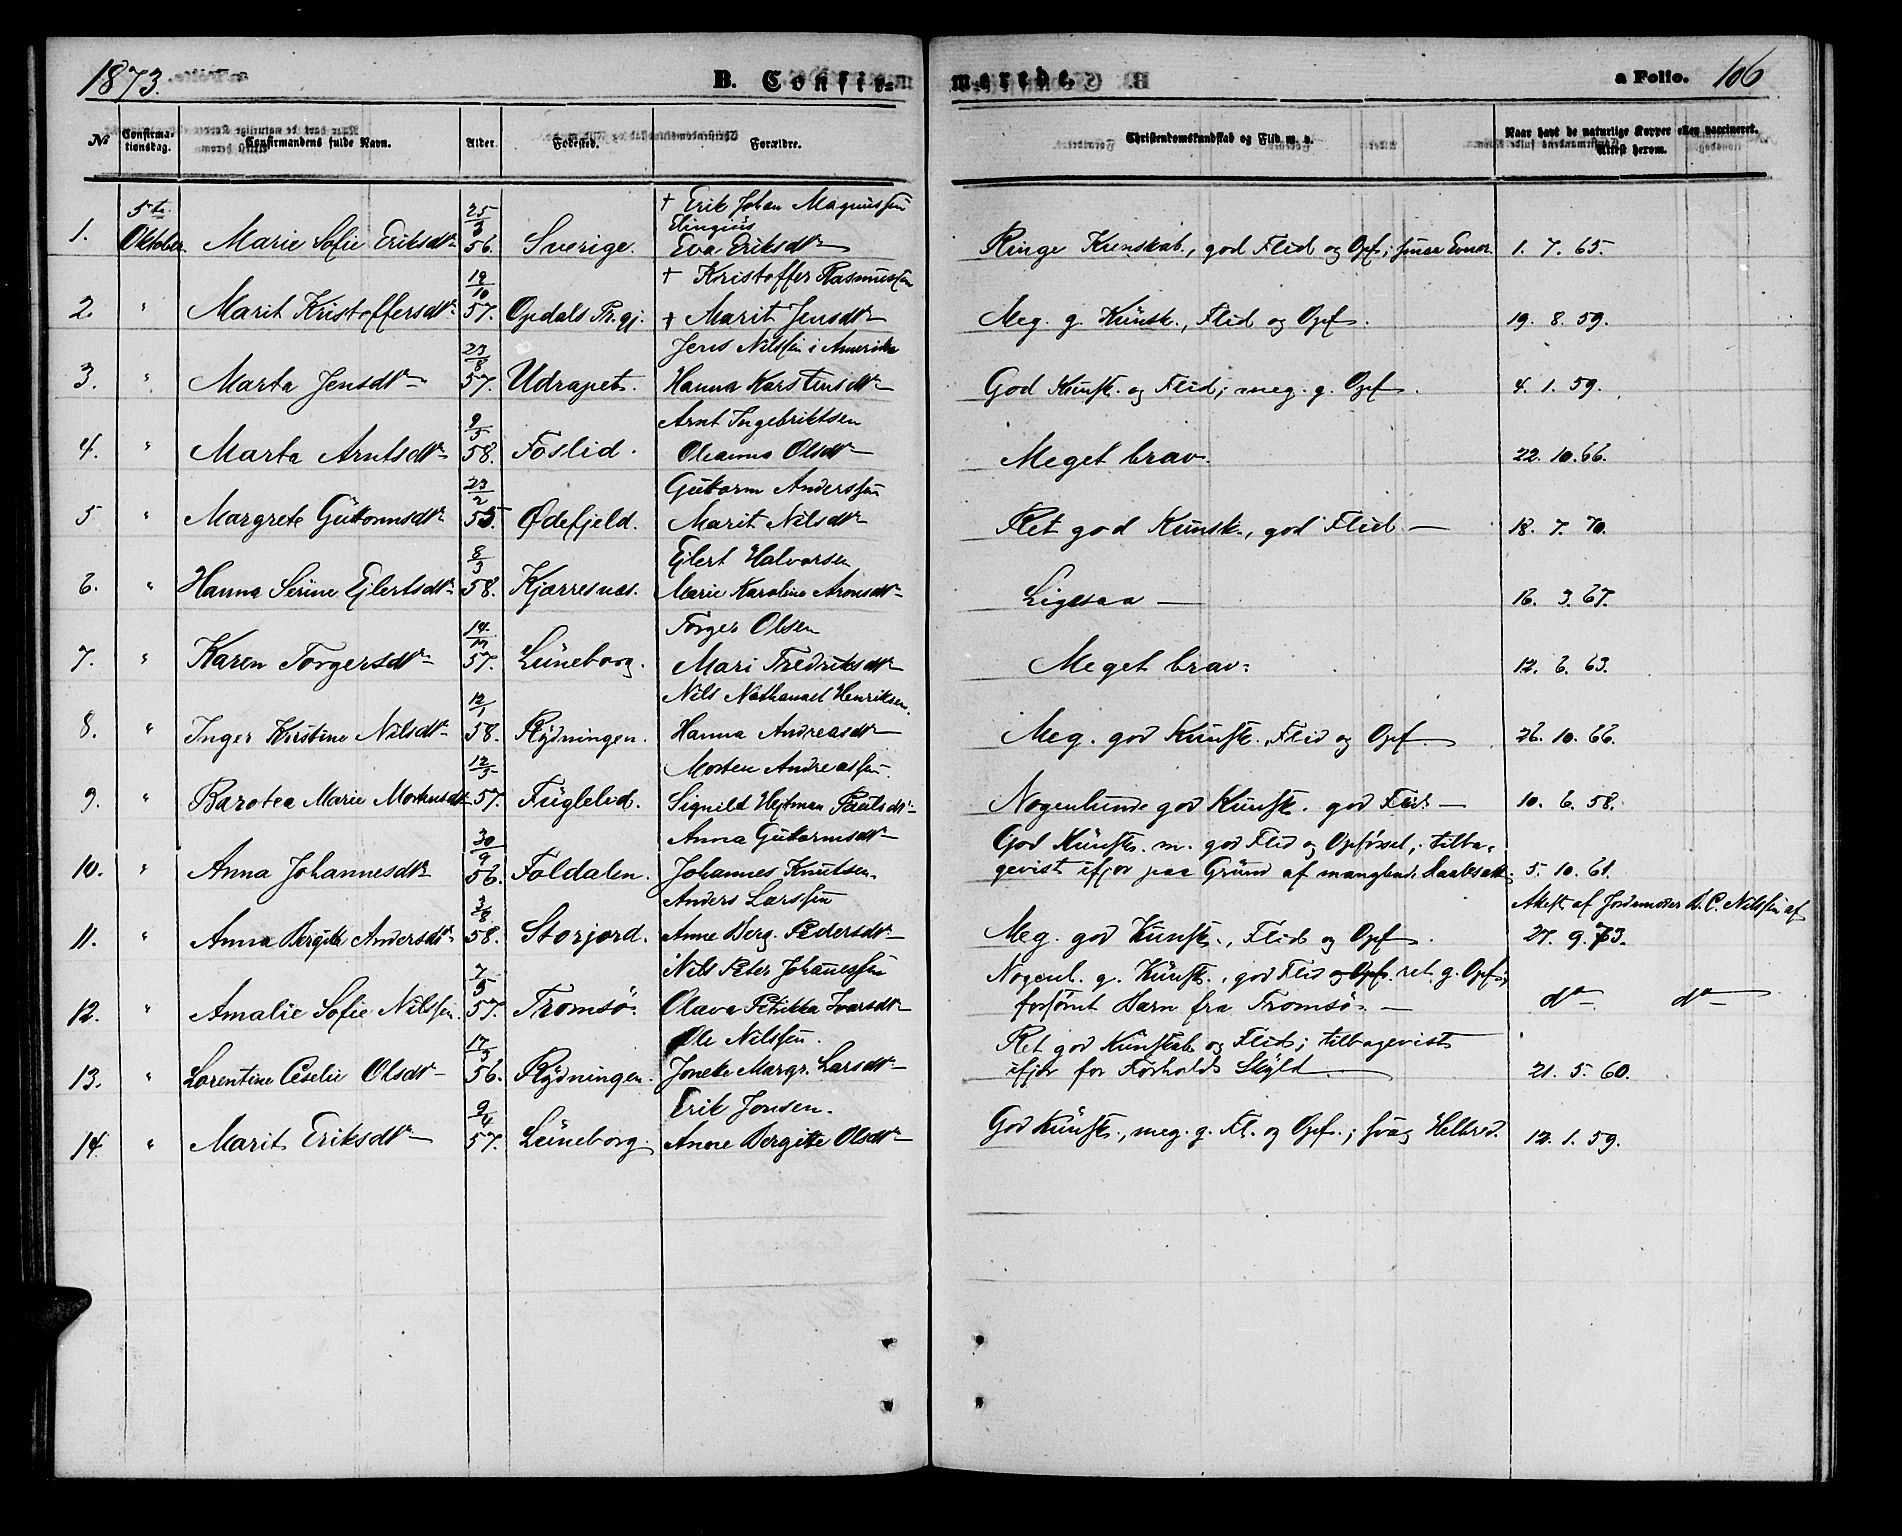 1873.
B. Confir=
merede.
a Folio. 106
No
Confirma-
tionsdag.
Confirmandens fulde Navn.
Alder.
Fødested.
Forældre.
Christendomskundskab og Flid m. v.
Naar havt de naturlige Kopper eller vaccineret.
Attest herom.
1. 5te Oktober Marie Sofie Eriksdtr 25/3 56. Sverige. † Erik Johan Magnussen
Elingius
Eva Eriksdtr
Ringe Kunskab, god Flid og Opf; smaa Evner. 1. 7. 65.
2. " Marit Kristoffersdtr 19/10 57. Opdals Pr.gj. † Kristoffer Rasmussen
† Marit Jensdtr
Meg. g. Kunsk., Flid og Opf. 19. 8. 59.
3. " Marta Jensdtr 23/8 57. Udrapet. Jens Nilssen i Amerika
Hanna Karstensdtr
God Kunsk. og Flid; meg. g. Opf. 4. 1. 59.
4. " Marta Arntsdtr 9/5 58. Foslid. Arnt Ingebriktsen
Oleanna Olsdtr
Meget brav. 22. 10. 66.
5 " Margrete Gutormsdtr 23/2 55. Ødefjeld. Gutorm Anderssen
Marit Nilsdtr
Ret god Kunsk., god Flid 18. 7. 70.
6. " Hanna Serine Ejlertsdtr 8/3 58. Kjærresnes. Ejlert Halvorsen
Marie Karoline Aronsdtr
Ligesaa 16. 3. 67.
7. " Karen Torgersdtr 57. Lüneborg. Torger Olsen
Mari Fredriksdtr
Meget brav. 12. 6. 63.
8. " Inger Kirstine Nilsdtr 12/1 58. Rydningen. Nils Nathanael Henriksen.
Hanna Andreasdtr
Meg. god Kunsk. Flid og Opf. 26. 10. 66.
9. " Barotea Marie Mortensdtr 12/3 57. Fuglelid. Morten Andreassen.
Signild Hejtman Paulsdtr
Nogenlunde god Kunsk. god Flid 10. 6. 58.
10. " Anna Johannesdtr 30/9 56. Foldalen. Anna Gutormsdtr
Johannes Knutsen.
God Kunsk. m. god Flid og Opførsel; tilba-
gevist ifjor paa Grund af manglende 5. 10. 61.
11. " Anna Bergitte Andersdtr 3/8 58. Storjord. Anders Larssen
Anne Berg. Pedersdtr
Meg. god Kunsk., Flid og Opf. Atest af Jordemoder B. C. Nilssen af
27. 9. 73.
12. " Amalie Sofie Nilssen 7/5 57. Tromsø. Nils Peter Johanessen
Olava Petrikka Ivarsdtr
Nogenl. g. Kunsk., god Flid og Opf. ret g. Opf;
forsømt Barn fra Tromsø. dto dto
13. " Lorentine Ceselie Olsdtr 17/3 56. Rydningen. Ole Nilssen.
Joneke Margr. Larsdtr
Ret god Kunskab og Flid; tilbagevist
ifjor for Forholds Skyld 21. 5. 60.
14 " Marit Eriksdtr 9/4 57. Lüneborg. Erik Jonsen.
Anne Bergitte Olsdtr
God Kunsk., meg. g. Fl. og Opf.; svag Helbred. 12. 1. 59.